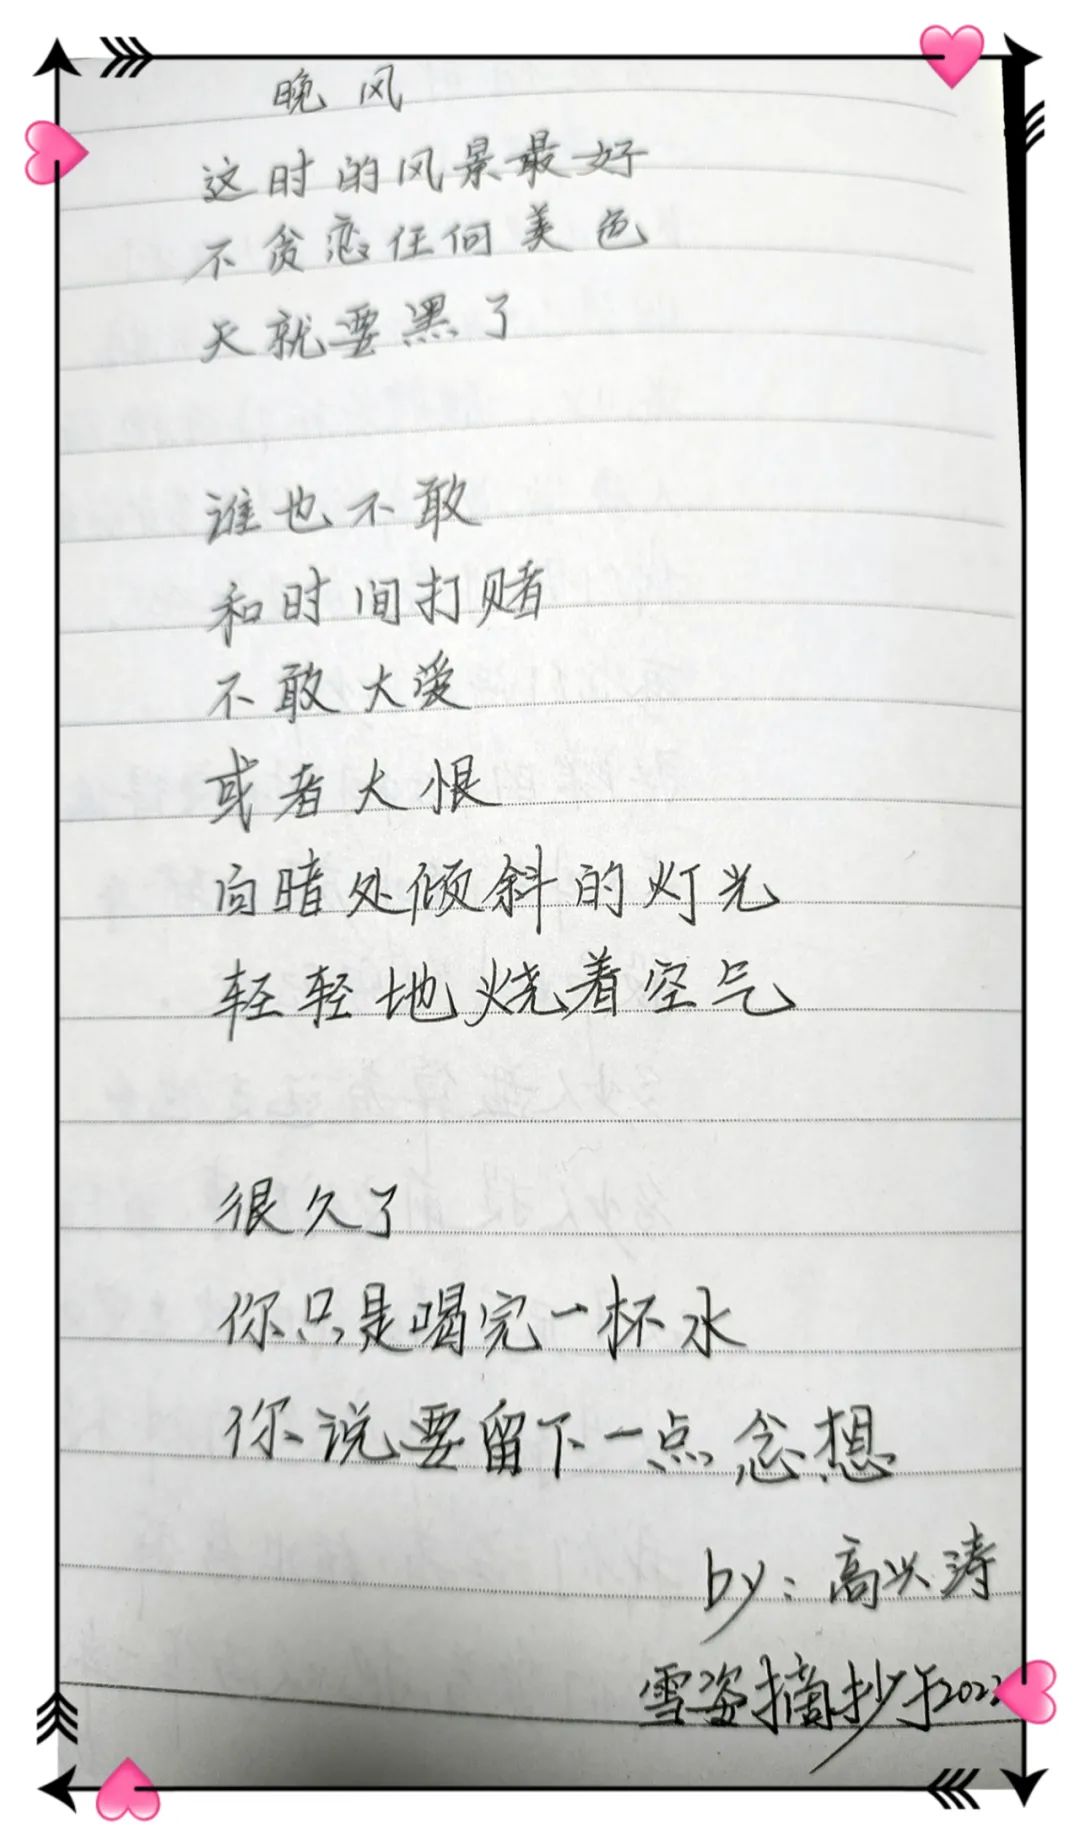 晚风
这时的风景最好
不贪恋任何美色
天就要黑了
谁也不敢
和时间打赌
不敢大爱
或者大恨
向暗处倾斜的灯光
轻轻地烧着空气
很久了
你只是喝完一杯水
你说要留下一点念想
by:高兴涛
雪姿摘抄于